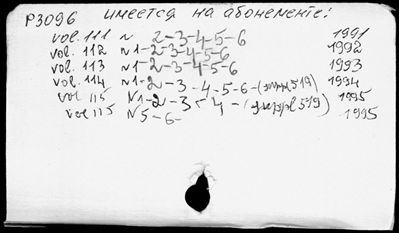 P3096 имеется на абонементе:
vol. 111 N 2-3-4-5-6 1991
vol. 112 N1-2-3-4-5-6 1992
vol. 113 N1-2-3-4-5-6 1993
vol. 114 N1-2-3-4-5-6-(suppl 519) 1994
vol 115 N1-2-3- 4-(suppl 519) 1995
vol 115 N5-6- 1995